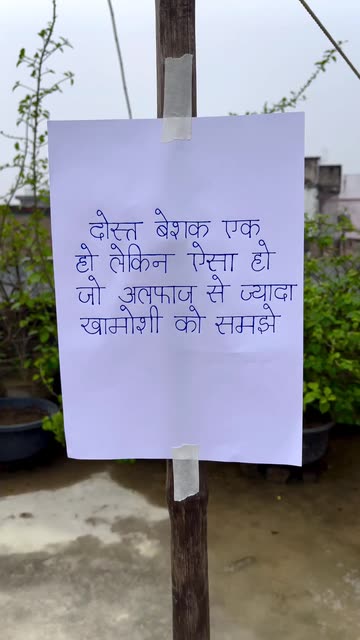 दोस्त बेशक एक
हो लेकिन ऐसा हो
जो अलफाज से ज्यादा
खामोशी को समझे